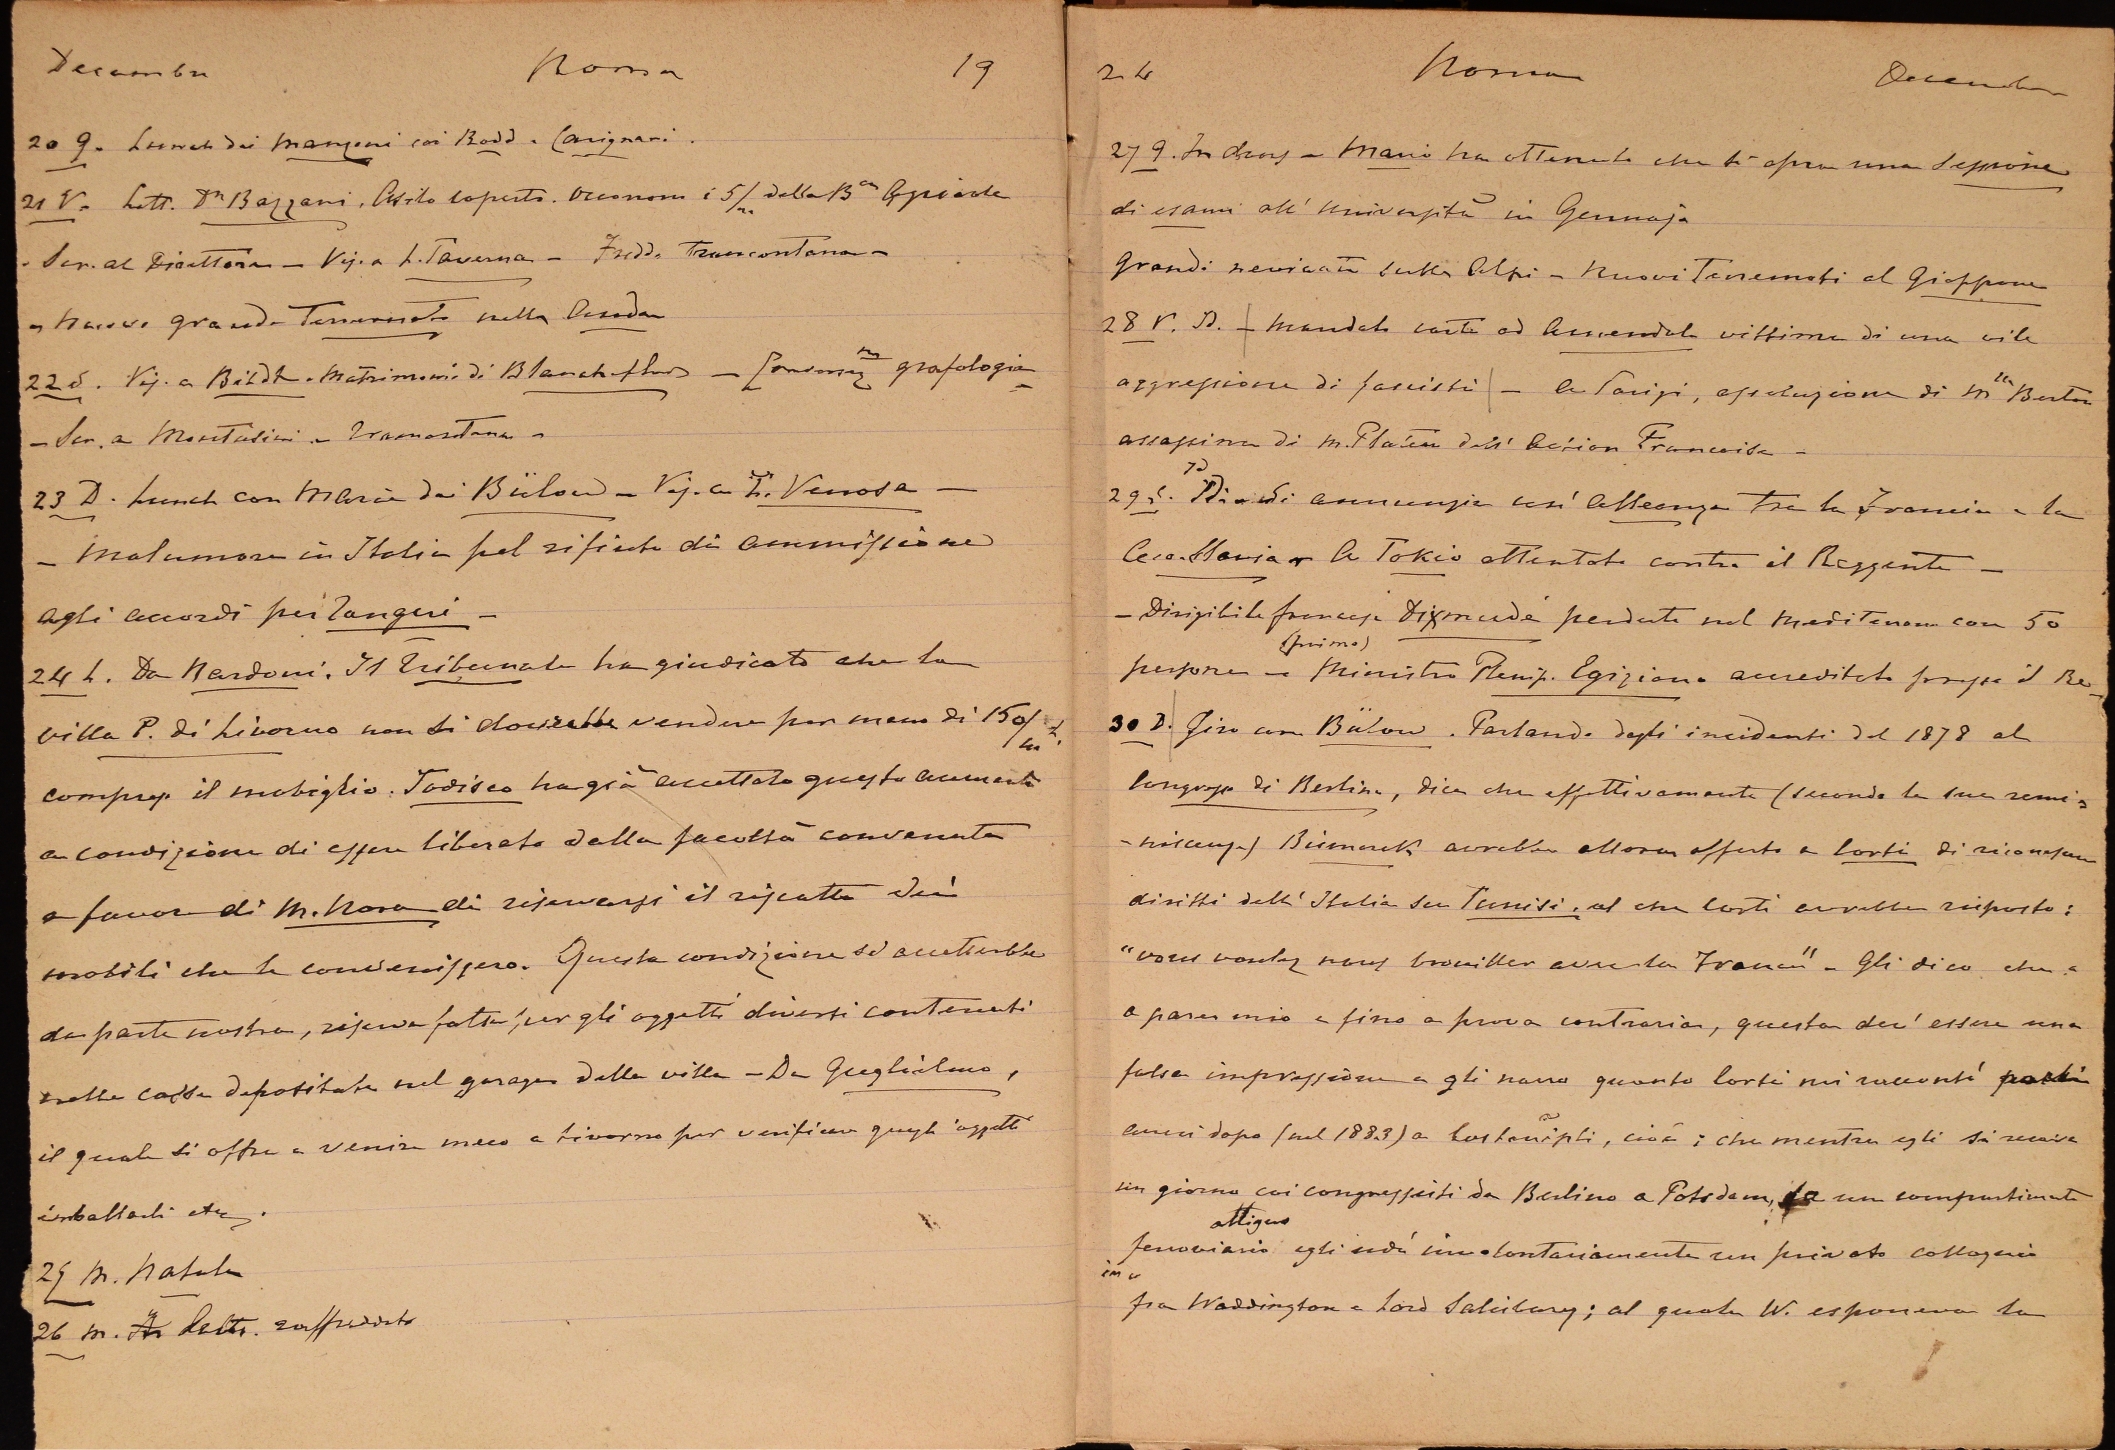 Decembre Roma 19
20 G. Lunch dai Manzoni coi Rodd e Carignani.
21 V. Lett. Dr Bazzani, Asilo coperto. economo i 5/m della Bca Agricola
Ser. al Direttore – Vis. a L. Taverna – Freddo tramontana –
– Nuovo grande Terremoto nella
22 S. Vis. a Bildt. Matrimonio di Blanche – grafologia
– Ser. a Montalini – tramontana –
23 D. Lunch con Maria dai Bülow – Vis. a Venosa –
– Malumore in Italia pel rifiuto di ammissione
agli accordi per Tangeri –
24 L. Da Nardoni. Il Tribunale ha giudicato che la
villa P. di Livorno non si dovrebbe vendere per meno di 150/m L.
compreso il mobiglio. Todisco ha già accettato questo aumento
a condizione di essere liberato dalla facoltà convenuta
a favore di M. Nora di riservarsi il riscatto dei
mobili che le convenissero. Questa condizione si accetterebbe
da parte nostra, riserva fatta per gli oggetti diversi contenuti
nelle casse depositate nel garage della villa – Da Guglielmo,
il quale si offre a venire meco a Livorno per verificare quegli oggetti
imballarli etc.
25 M. Natale
26 M. Lett. raffreddato
24 Roma Decembre
27 G. – Mario ha ottenuto che si apra una Sessione
di esami all' Università in Gennajo
Grandi nevicate sulle Alpi – Nuovi Terremoti al Giappone
28 V. Id. – Mandato carte ad Amendola vittima di una vile
aggressione di fascisti – A Parigi, assoluzione di Mlle Berton
assassina di M. Plateau dell' Action Française –
29 S. Id – Si annunzia un' Alleanza tra la Francia e la
Ceco-Slavia – A Tokio attentato contro il Reggente –
– Dirigibile francese Dixmude perduto nel Mediterraneo con 50
persone – (primo) Ministro Plenip. Egiziano accreditato presso il Re –
30 D. Giro con Bülow. Parlando degli incidenti del 1878 al
Congresso di Berlino, dice che effettivamente (secondo le sue remi-
-niscenze) Bismarck avrebbe allora offerto a Corti di riconoscere
diritti dell' Italia su Tunisi, al che Corti avrebbe risposto:
"vous voulez nous brouiller avec la France" – Gli dico che
a parer mio e fino a prova contraria, questa dev' essere una
falsa impressione e gli narro quanto Corti mi raccontò pochi
anni dopo (nel 1883) a Costantinpli, cioè: che mentre egli si recava
un giorno coi congressisti da Berlino a Potsdam, da un compartimento
ferroviario attiguo egli udì involontariamente un privato colloquio
fra Waddington e Lord Salisbury; al quale W. esponeva la